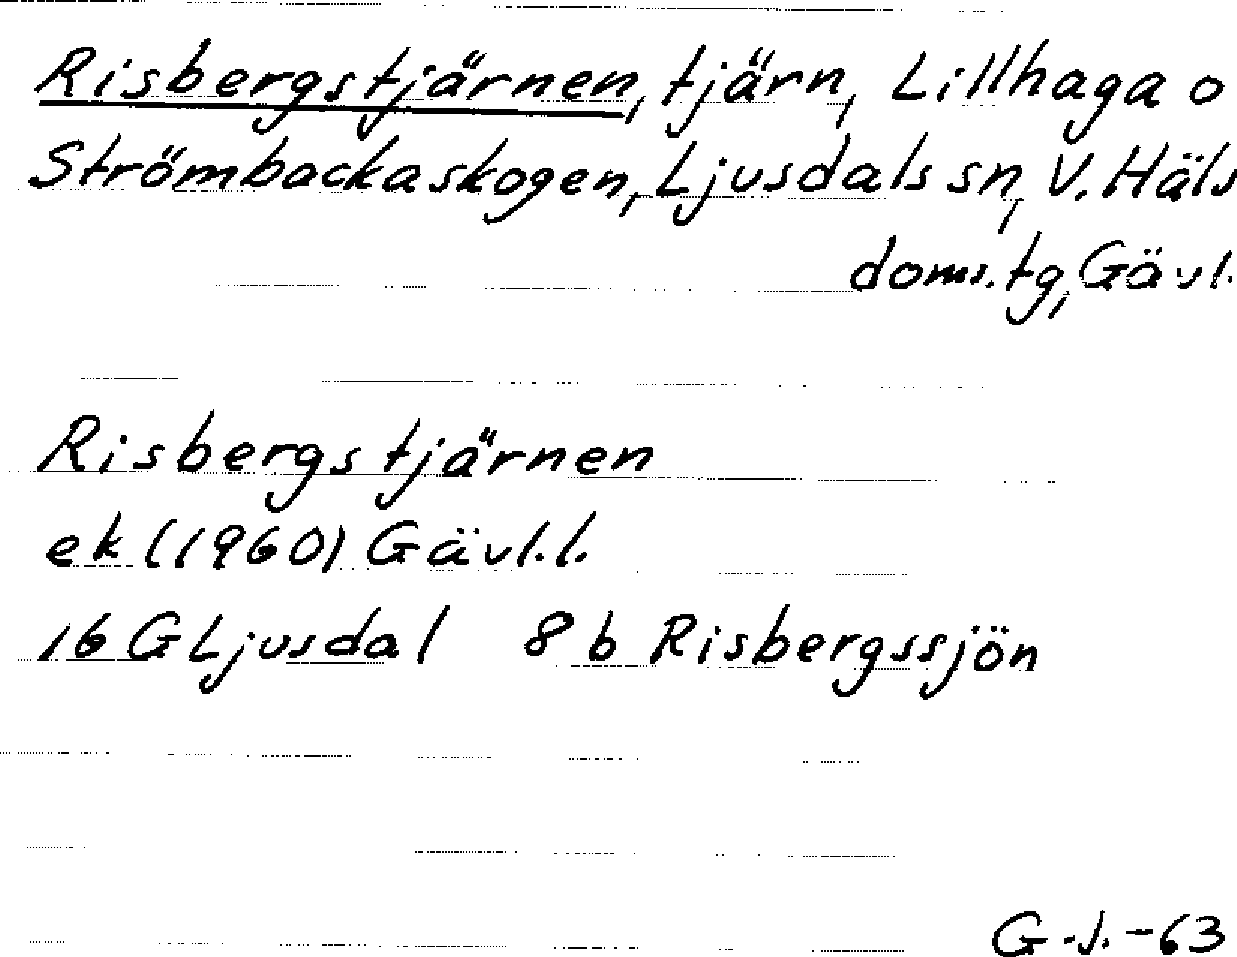 Risbergstjärnen, tjärn, Lillhaga o
Strömbackaskogen, Ljusdals sn, V. Häls
doms.tg, Gävl.
Risbergstjärnen
ek (1960) Gävl.l.
16 G Ljusdal 8 b Risbergssjön
G.J. -63